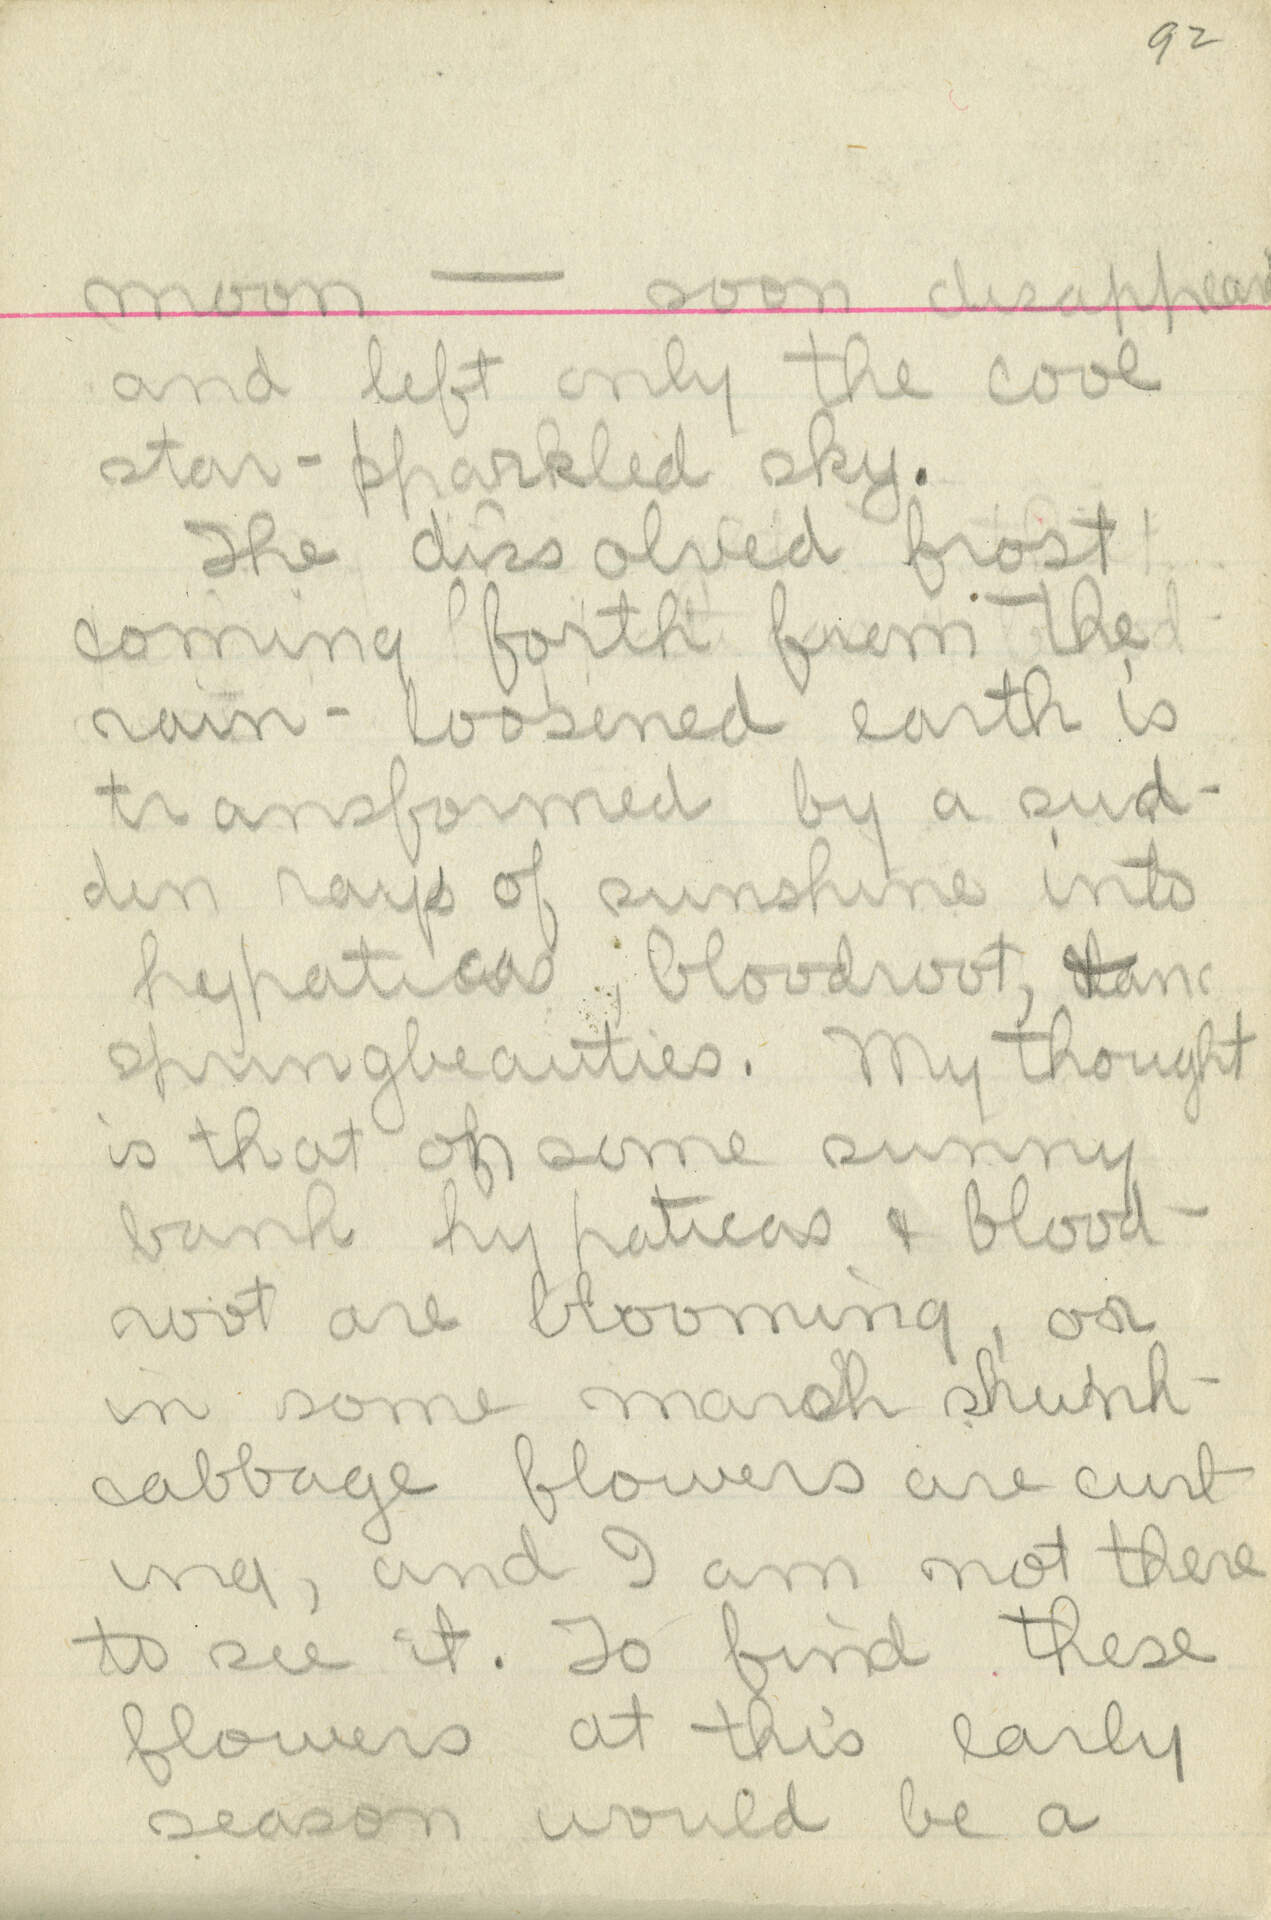 92
moon — soon disappear
and left only the cool
star-sparkled sky.
The dissolved frost
coming forth from the
rain-loosened earth is
transformed by a sud-
den rays of sunshine into
hypaticas, bloodroot, and
springbeauties. My thought
is that on some sunny
bank hypaticas & blood-
root are blooming, or
in some marsh skunk-
cabbage flowers are curl
ing, and I am not there
to see it. To find these
flowers at this early
season would be a